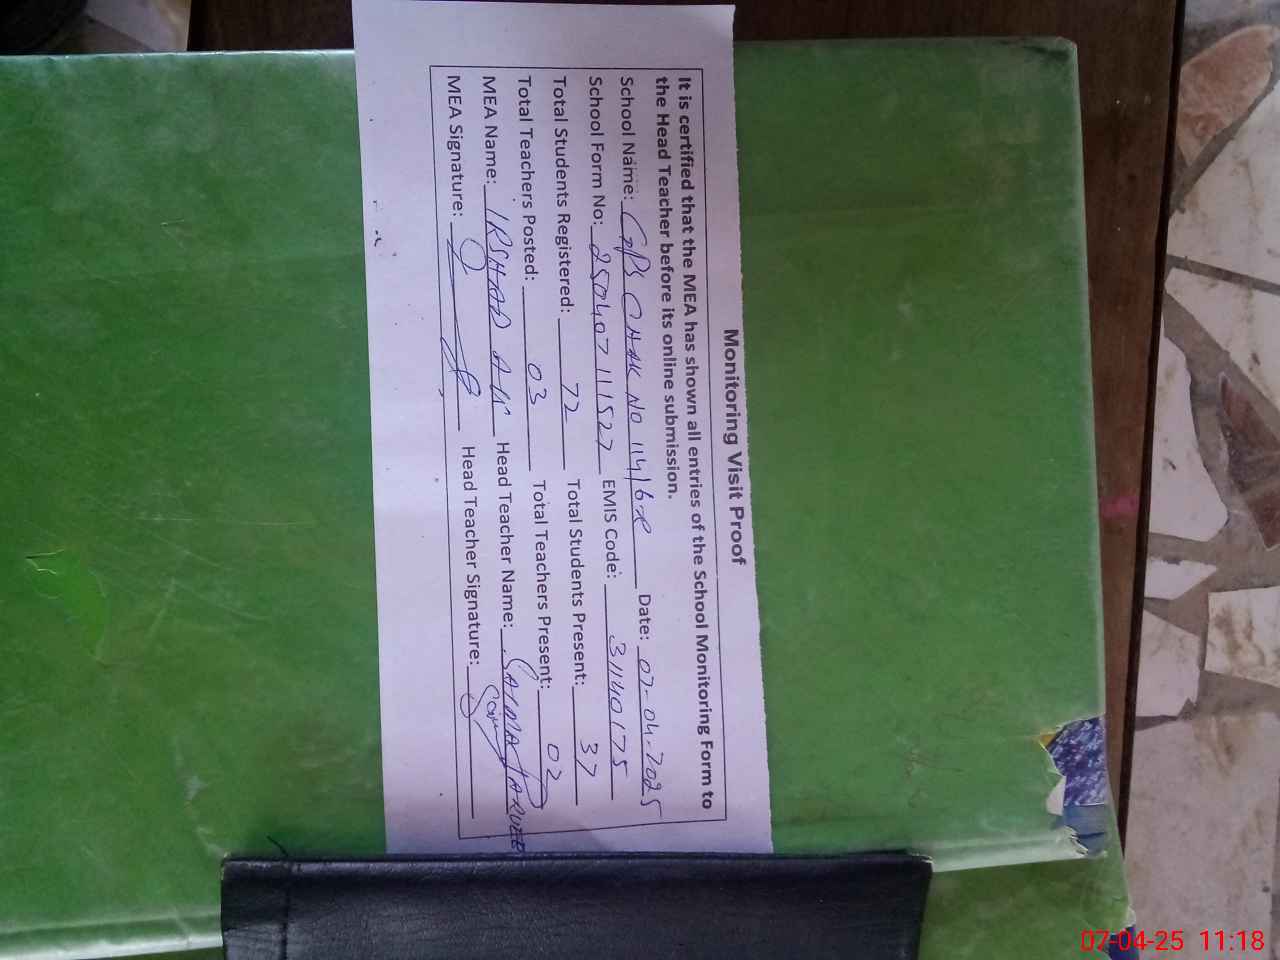 Monitoring Visit Proof
It is certified that the MEA has shown all entries of the School Monitoring Form to
the Head Teacher before its online submission.
School Name: GPS CHAK NO 114/6-R Date: 07-04-2025
School Form No: 250407111527 EMIS Code: 31140175
Total Students Registered: 72 Total Students Present: 37
Total Teachers Posted: 03 Total Teachers Present: 02
MEA Name: IRSHAD ALI Head Teacher Name: SAIMA
MEA Signature: Head Teacher Signature:
07-04-25 11:18